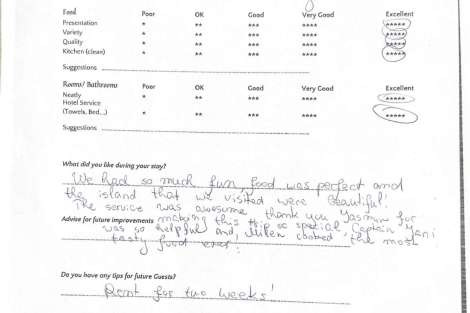 Food Poor OK Good Very Good Excellent
Presentation * ** *** **** *****
Variety * ** *** **** *****
Quality * ** *** **** *****
Kitchen (clean) * ** *** **** *****
Suggestions
Rooms/ Bathrooms Poor OK Good Very Good Excellent
Neatly * ** *** **** *****
Hotel Service
(Towels, Bed...) * ** *** **** *****
Suggestions
What did you like during your stay?
We had so much fun, food was perfect and
the island that we visited were beautiful!
The service was awesome thank you Yasmin for
Advise for future improvements making this trip so special, Captain Yani
was so helpful and, Milen cooked the most
tasty food ever!
Do you have any tips for future Guests?
Rent for two weeks!